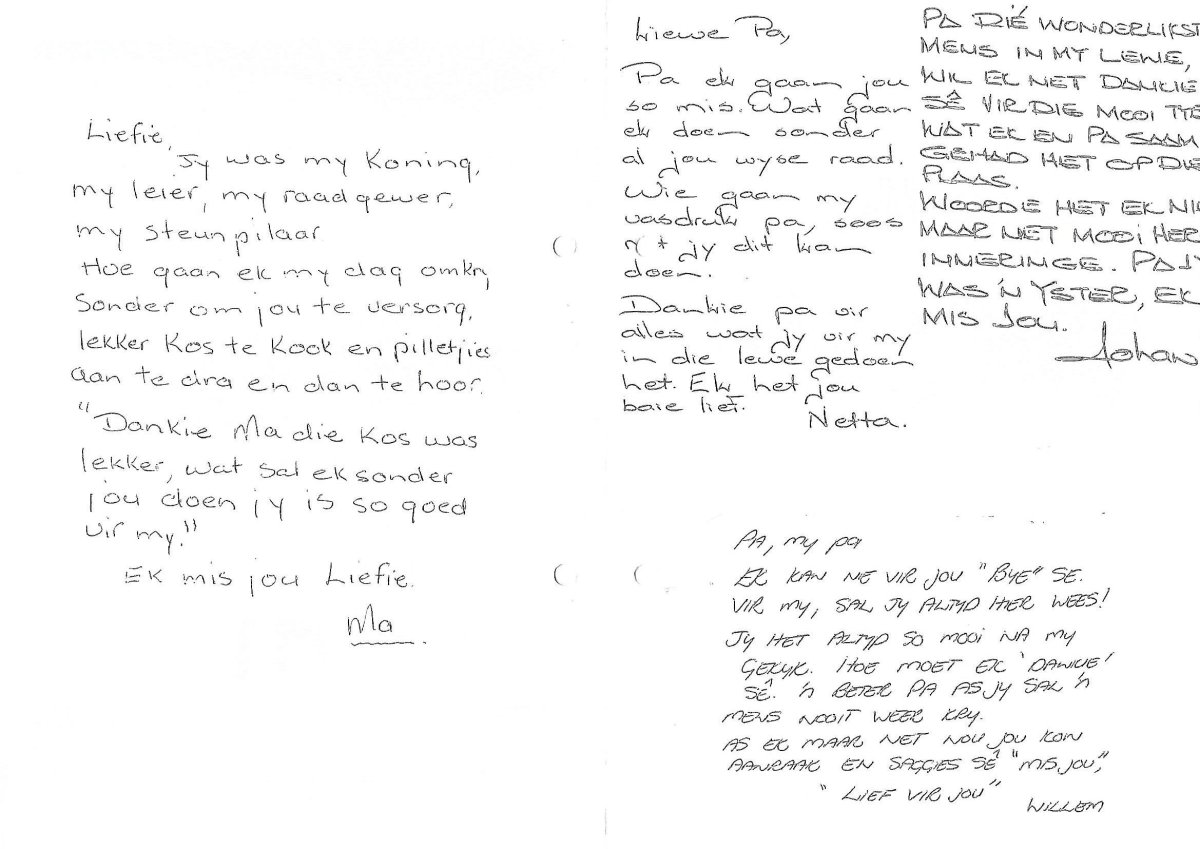 Liefie,
Jy was my Koning,
my leier, my raadgewer,
my steunpilaar
Hoe gaan ek my dag omkry
Sonder om jou te versorg,
lekker Kos te Kook en pilletjies
aan te dra en dan te hoor.
"Dankie Ma die Kos was
lekker, wat sal ek sonder
jou doen jy is so goed
vir my."
EK mis jou Liefie.
Ma
Liewe Pa,
Pa ek gaan jou
so mis. Wat gaan
ek doen sonder
al jou wyse raad.
Wie gaan my
vasdruk pa, soos
jy dit kan
doen.
Dankie pa vir
alles wat jy vir my
in die lewe gedoen
het. Ek het jou
baie lief.
Netta.
PA DIÉ WONDERLIKST
MENS IN MY LEWE,
WIL EK NET DANKIE
SÊ VIR DIE MOOI TYE
WAT EK EN PA SAAM
GEHAD HET OP DIE
PLAAS.
WOORDE HET EK NIE
MAAR NET MOOI HER
INNERINGE. PA JY
WAS 'N YSTER, EK
MIS JOU.
Johan
PA, my pa
EK KAN NE VIR JOU "BYE" SE.
VIR MY, SAL JY ALTYD HIER WEES!
JY HET ALTYD SO MOOI NA MY
GEKYK. HOE MOET EK 'DANKIE'
SÊ. 'N BETER PA AS JY SAL 'N
MENS NOOIT WEER KRY.
AS EK MAAR NET NOU JOU KON
AANRAAK EN SAGGIES SÊ "MIS JOU",
"LIEF VIR JOU"
WILLEM